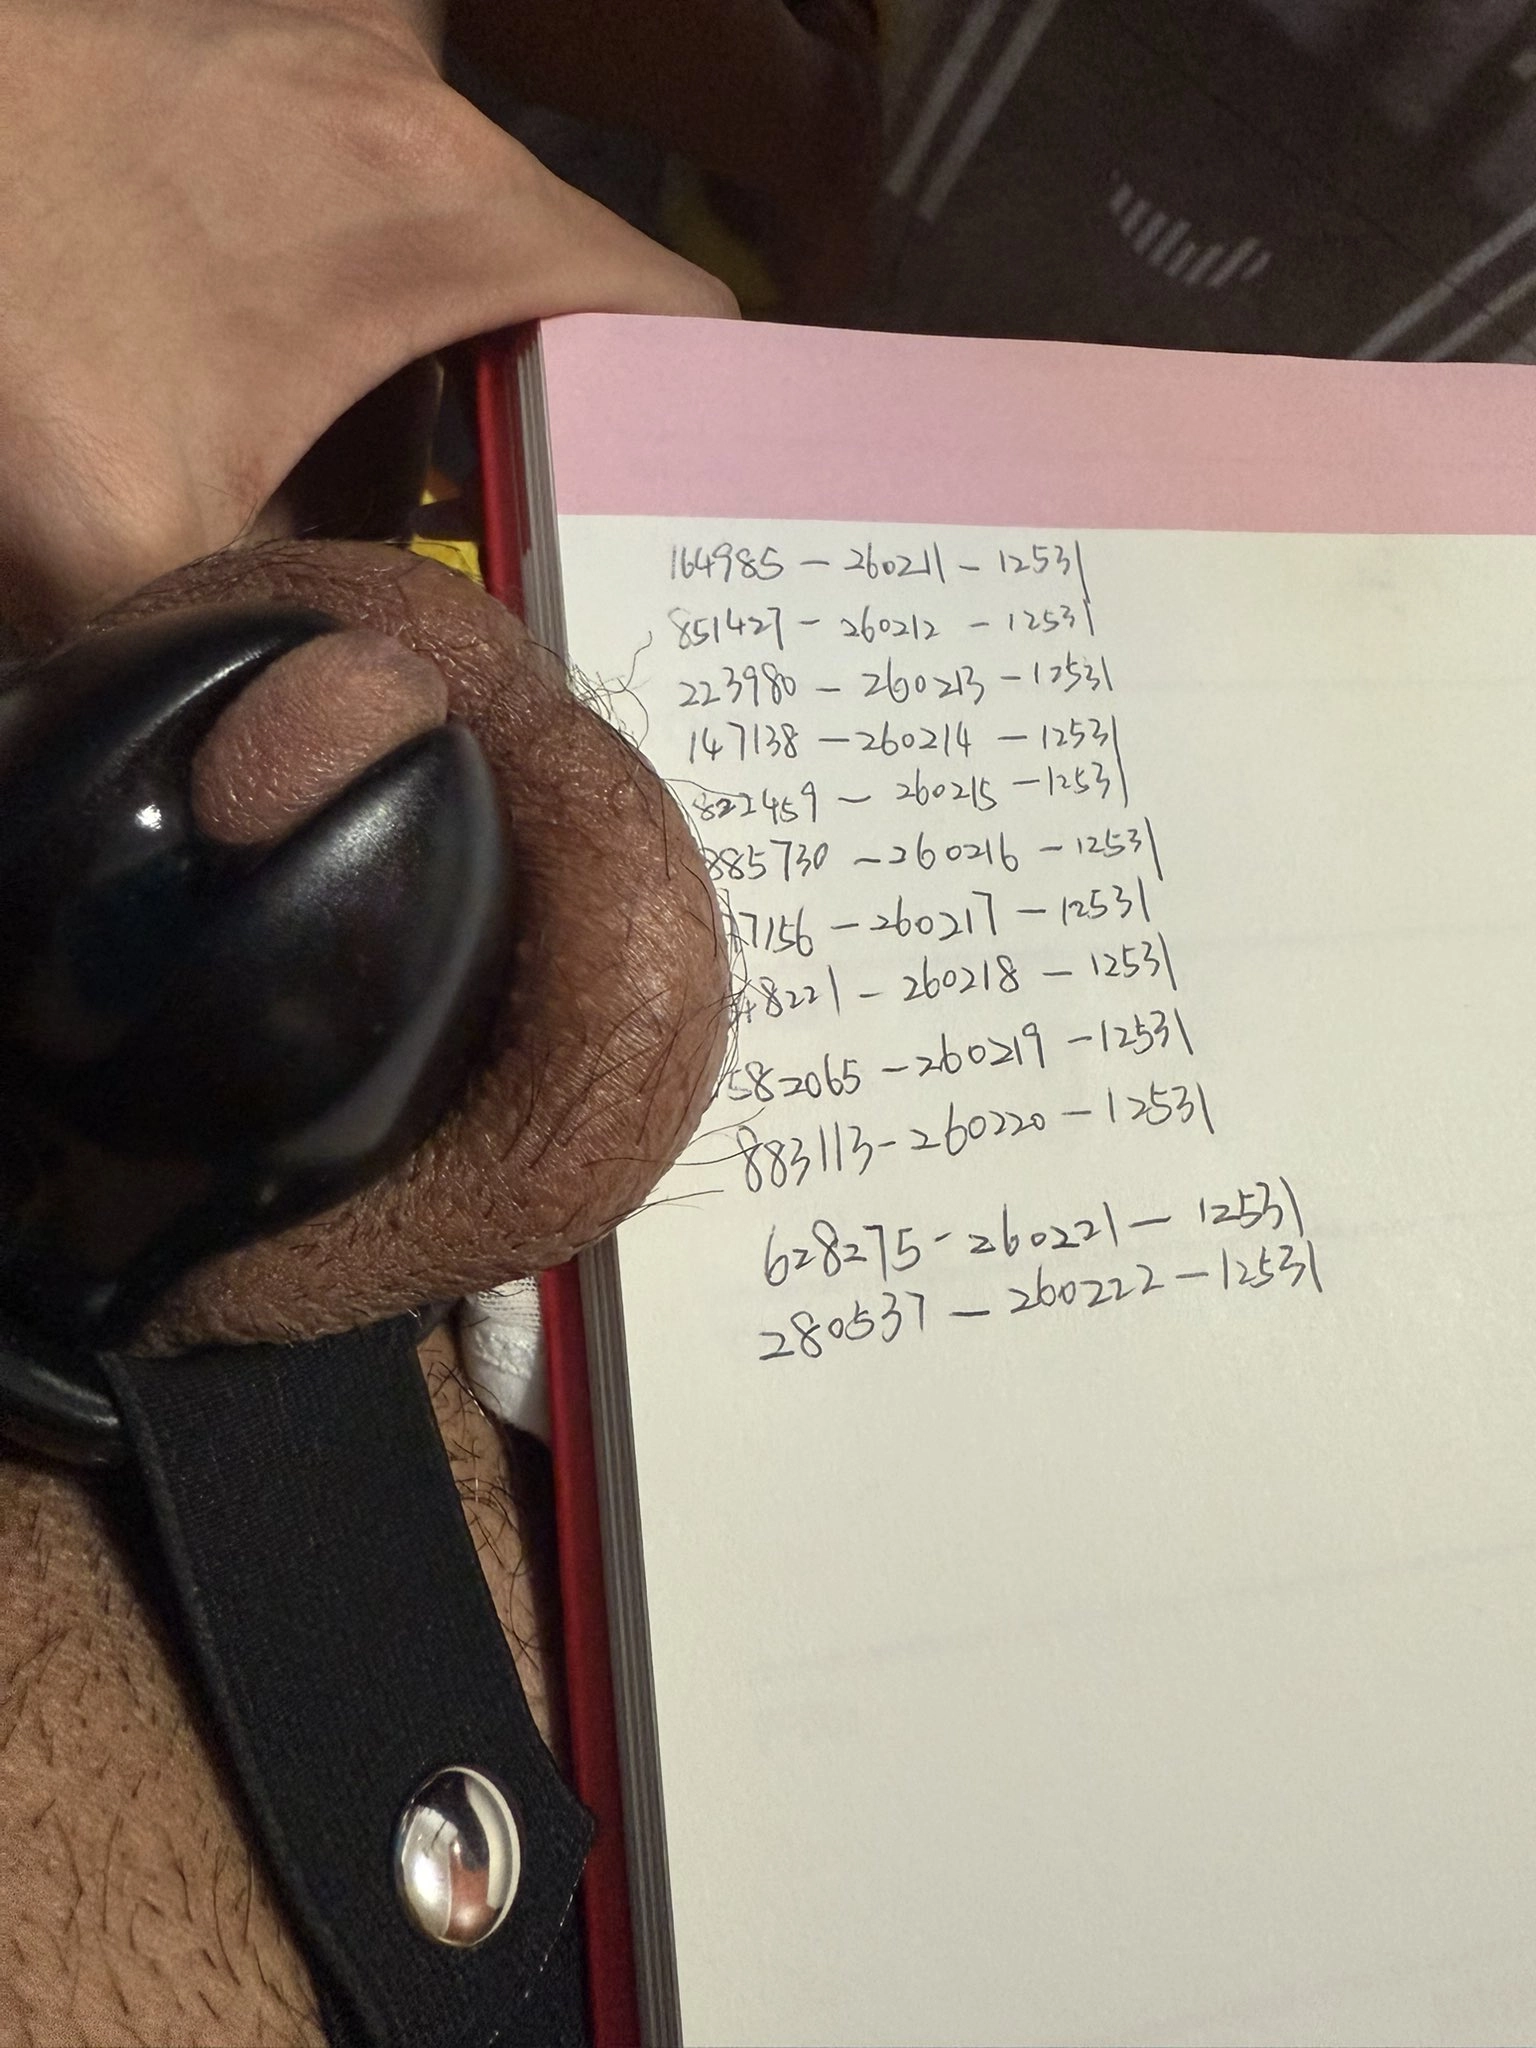 164985 - 260211 - 12531
851427 - 260212 - 12531
223980 - 260213 - 12531
147138 - 260214 - 12531
822459 - 260215 - 12531
885730 - 260216 - 12531
7156 - 260217 - 12531
48221 - 260218 - 12531
582065 - 260219 - 12531
883113 - 260220 - 12531
628275 - 260221 - 12531
280537 - 260222 - 12531